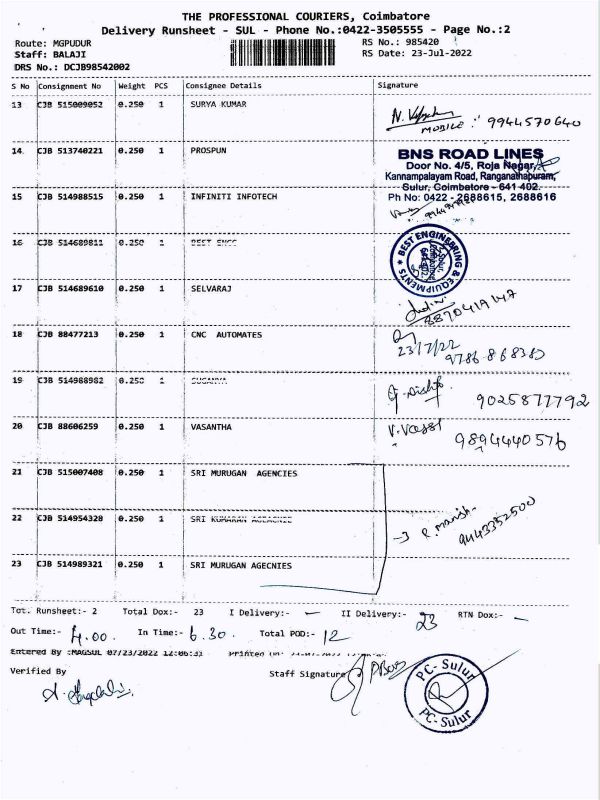 THE PROFESSIONAL COURIERS, Coimbatore
Delivery Runsheet - SUL - Phone No.:0422-3505555 - Page No.:2
Route: MGPUDUR RS No.: 985420
Staff: BALAJI RS Date: 23-Jul-2022
DRS No.: DCJB98542002
S No Consignment No Weight PCS Consignee Details Signature
13 CJB 515009052 0.250 1 SURYA KUMAR
MOBILE: 9944570640
14 CJB 513740221 0.250 1 PROSPUN
BNS ROAD LINES
Door No. 4/5, Roja Nagar,
Kannampalayam Road, Ranganathapuram,
Sulur, Coimbatore - 641 402.
Ph No: 0422 - 2688615, 2688616
15 CJB 514988515 0.250 1 INFINITI INFOTECH
16 CJB 514689811 0.250 1 BEST ENGG
BEST ENGINEERING & EQUIPMENTS
17 CJB 514689610 0.250 1 SELVARAJ
8870419147
18 CJB 88477213 0.250 1 CNC AUTOMATES
23/7/22
19 CJB 514988982 0.250 1 SUGANYA
9025877792
20 CJB 88606259 0.250 1 VASANTHA
9894440576
21 CJB 515007408 0.250 1 SRI MURUGAN AGENCIES
22 CJB 514954328 0.250 1 SRI KUMARAN
R. Manish
9443352500
23 CJB 514989321 0.250 1 SRI MURUGAN AGECNIES
Tot. Runsheet:- 2 Total Dox:- 23 I Delivery:- — II Delivery:- 23 RTN Dox:- —
Out Time:- 4.00. In Time:- 6.30. Total POD:- 12
Entered By :MAGSUL 07/23/2022 12:06:31 Printed On:
Verified By Staff Signature
PC- Sulur
PC- Sulur